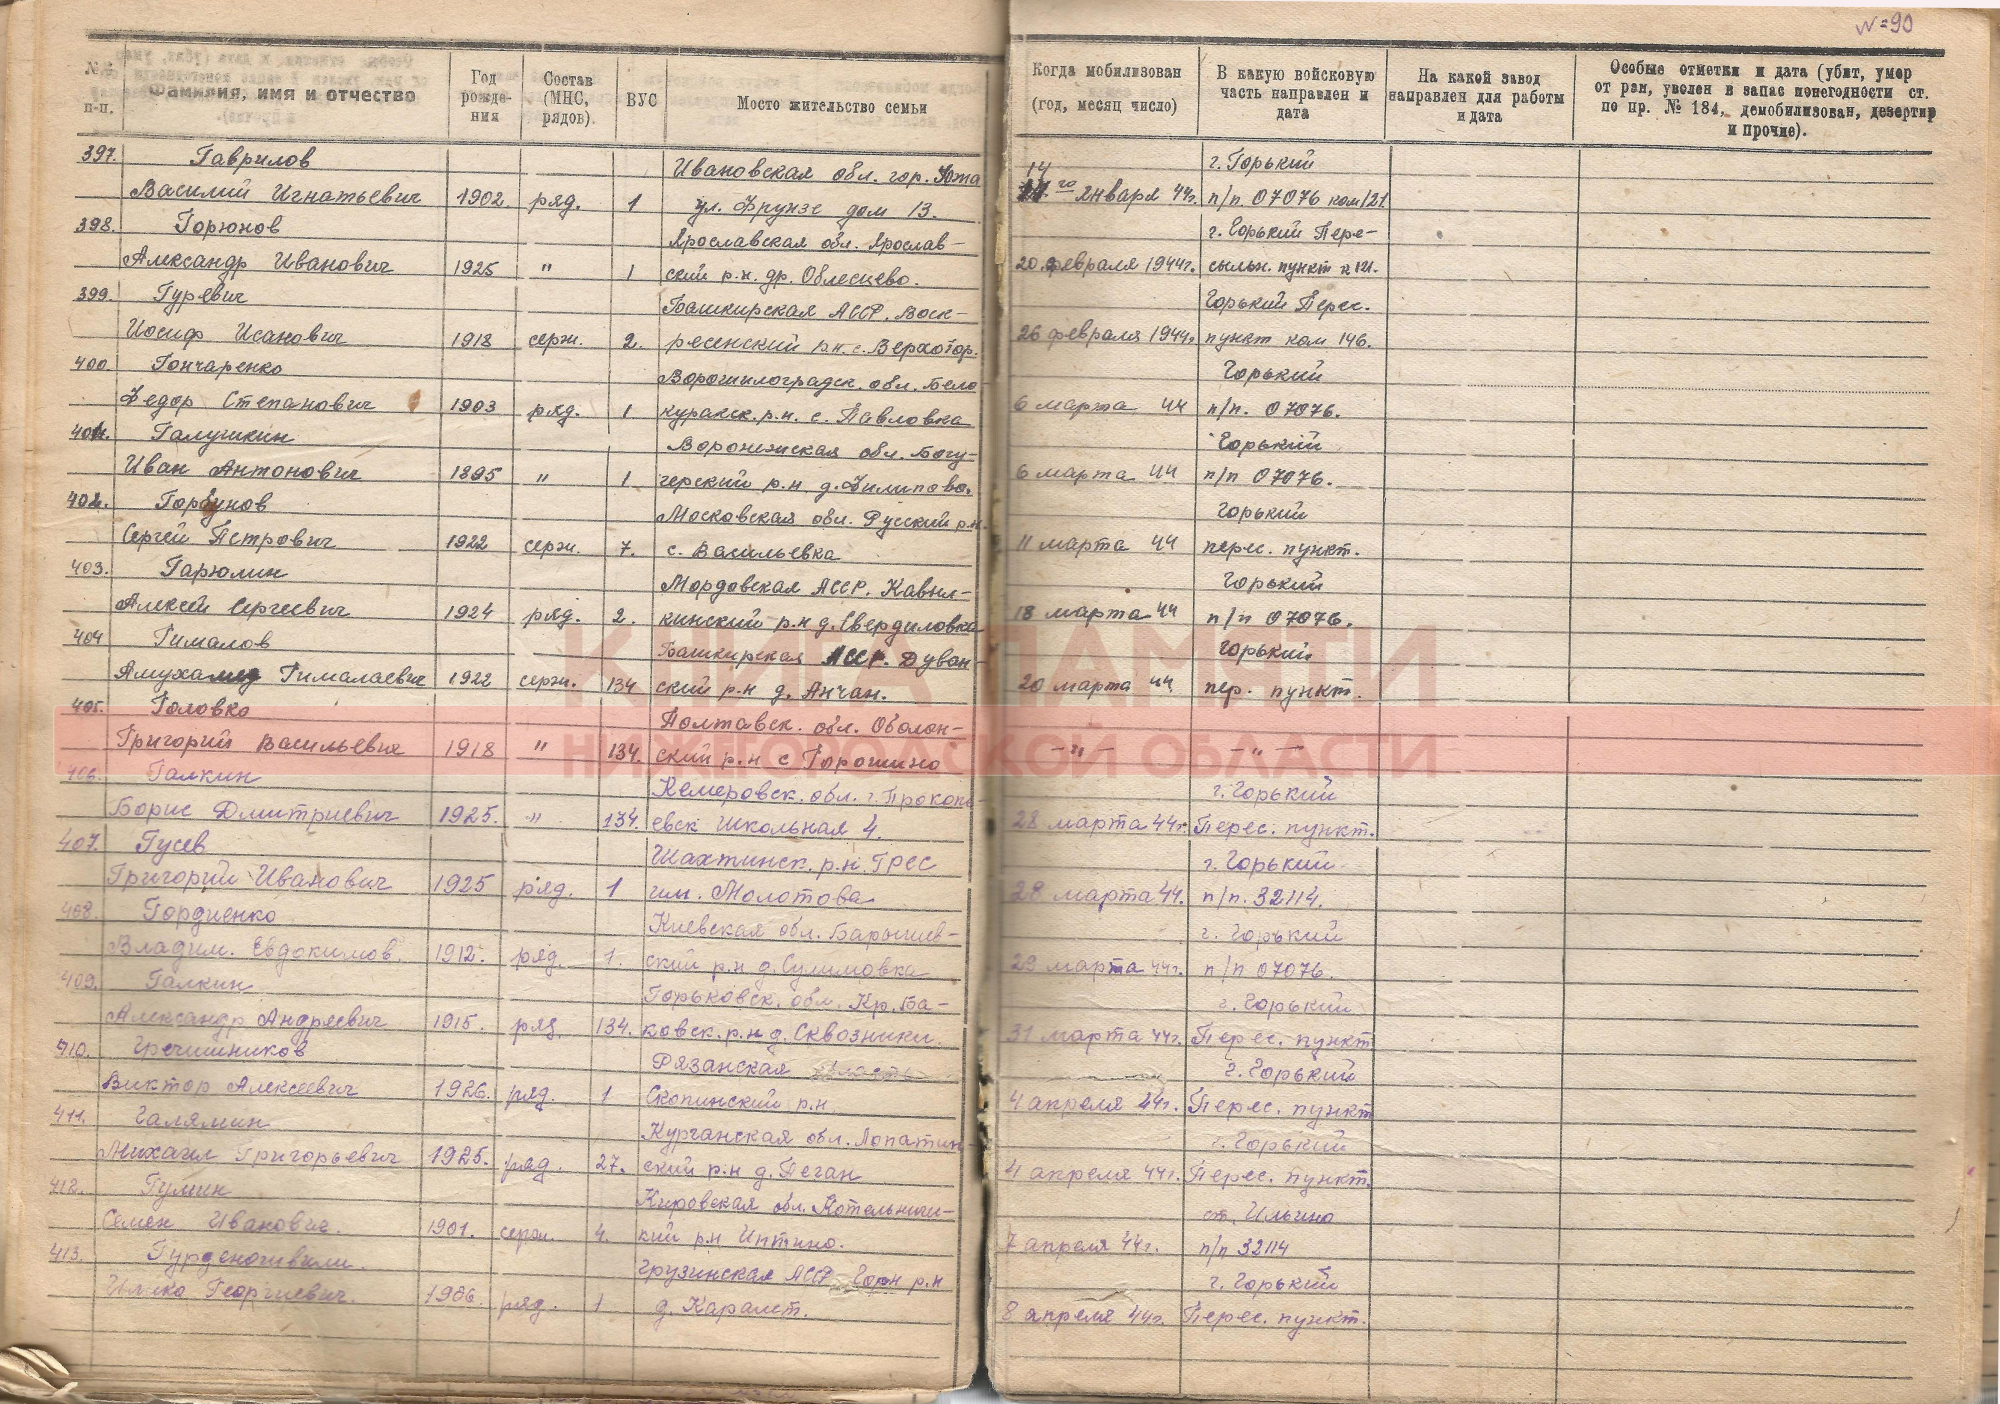 №=90
№№ п-п.
Фамилия, имя и отчество
Год рожде-ния
Состав (МНС, рядов).
ВУС
Место жительство семьи
Когда мобилизован (год, месяц число)
В какую войсковую часть направлен и дата
На какой завод направлен для работы и дата
Особые отметки и дата (убит, умер от ран, уволен в запас понегодности ст. по пр. № 184, демобилизован, дезертир и прочие).
397. Гаврилов Ивановская обл. гор. Южа 14 г. Горький
Василий Игнатьевич 1902. ряд. 1 ул. Фрунзе дом 13. го января 44г. п/п. 07076 ком 121
398. Горюнов Ярославская обл. Ярослав- г. Горький Пере-
Александр Иванович 1925 " 1 ский р.н. др. Облесцево. 20 февраля 1944г. сыльн. пункт к 121.
399. Гуревич Башкирская АССР. Воск- Горький Перес.
Иосиф Исанович 1918 серж. 2. ресенский р.н. с. Верхотор. 26 февраля 1944г пункт ком 146.
400. Гончаренко Ворошилоградск. обл. Бело- Горький
Федор Степанович 1903 ряд. 1 куракск. р.н. с. Павловка 6 марта 44 п/п. 07076.
401. Галушкин Воронежская обл. Богу- Горький
Иван Антонович 1895 " 1 черский р.н. д. Филипово. 6 марта 44 п/п 07076.
402. Горбунов Московская обл. Русский р.н. Горький
Сергей Петрович 1922 серж. 7. с. Васильевка 11 марта 44 перес. пункт.
403. Гарюлин Мордовская АССР. Кавыл- Горький
Алексей Сергеевич 1924 ряд. 2. кинский р.н д. Свердиловка 18 марта 44 п/п 07076.
404 Гималов Башкирская АССР. Дуван- Горький
Амухамед Гималаевич 1922 серж. 134 ский р.н д. Анчан. 20 марта 44 пер. пункт.
405. Головко Полтавск. обл. Оболон-
Григорий Васильевич 1918 " 134. ский р.н с Горошино - " - - " -
406. Галкин Кемеровск. обл. г. Прокопь- г. Горький
Борис Дмитриевич 1925. " 134. евск Школьная 4. 28 марта 44г. Перес. пункт.
407. Гусев Шахтинск. р.н. Грес г. Горький
Григорий Иванович 1925 ряд. 1 им. Молотова 28 марта 44. п/п. 32114.
408. Гордиенко Киевская обл. Барышев- г. Горький
Владим. Евдокимов. 1912. ряд. 1. ский р.н д. Сулимовка 29 марта 44г. п/п 07076.
409. Галкин Горьковск. обл. Кр. Ба- г. Горький
Александр Андреевич 1915. ряд. 134. ковск. р.н д. Сквозники. 31 марта 44г. Перес. пункт
410. Гречишников Рязанская область г. Горький
Виктор Алексеевич 1926. ряд. 1 Скопинский р.н 4 апреля 44г. Перес. пункт
411. Галямин Курганская обл. Лопатин- г. Горький
Михаил Григорьевич 1925. ряд. 27. ский р.н д. Пеган 4 апреля 44г. Перес. пункт.
412. Гулин Кировская обл. Котельнич- ст. Ильино
Семен Иванович. 1901. серж. 4. кий р.н Иптино. 7 апреля 44г. п/п 32114
413. Грузинская АССР Гори р.н г. Горький
Георгиевич. 1906. ряд. 1 д. Каралет. 8 апреля 44г. Перес. пункт.
КНИГА ПАМЯТИ
НИЖЕГОРОДСКОЙ ОБЛАСТИ